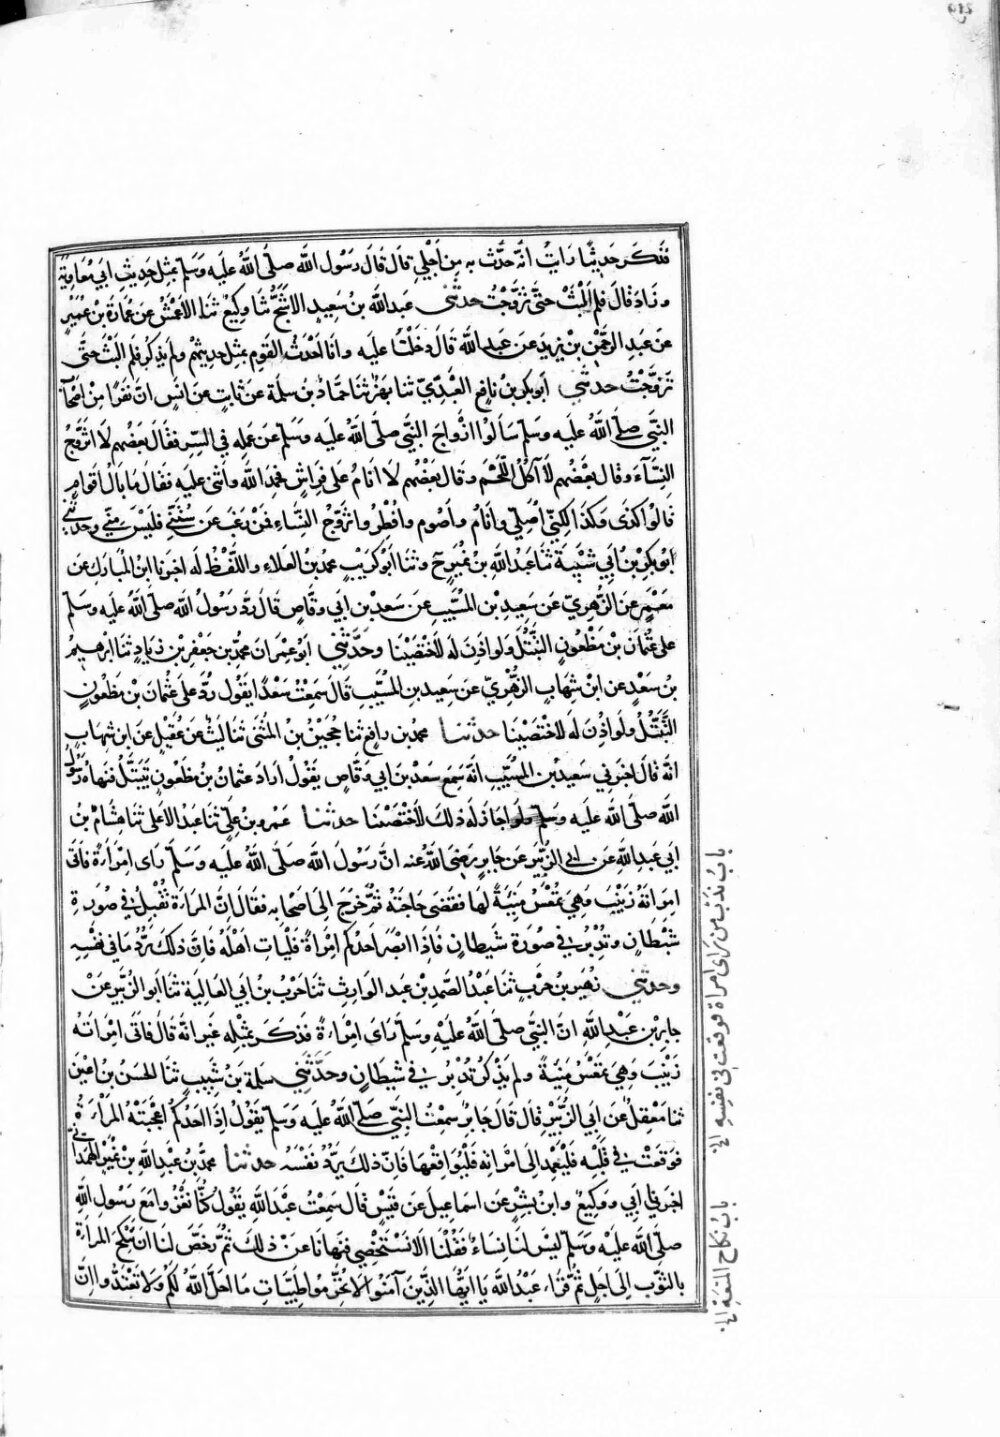 فذكر حديثا رايت انه حدث به من اجلي قال قال رسول الله صلى الله عليه وسلم بمثل حديث ابي معاوية
وزاد قال فلم البث حتى تزوجت حدثني عبد الله بن سعيد الاشج ثنا وكيع ثنا الاعمش عن عمارة بن عمير
عن عبد الرحمن بن يزيد عن عبد الله قال دخلنا عليه وانا احدث القوم بمثل حديثهم ولم يذكر فلم البث حتى
تزوجت حدثني ابو بكر بن نافع العبدي ثنا بهز ثنا حماد بن سلمة عن ثابت عن انس ان نفرا من اصحاب
النبي صلى الله عليه وسلم سالوا ازواج النبي صلى الله عليه وسلم عن عمله في السر فقال بعضهم لا اتزوج
النساء وقال بعضهم لا آكل اللحم وقال بعضهم لا انام على فراش فحمد الله واثنى عليه فقال ما بال اقوام
قالوا كذى وكذا لكني اصلي وانام واصوم وافطر واتزوج النساء فمن رغب عن سنتي فليس مني وحدثني
ابو بكر بن ابي شيبة ثنا عبد الله بن نمير ح وثنا ابو كريب محمد بن العلاء واللفظ له اخبرنا ابن المبارك عن
معمر عن الزهري عن سعيد بن المسيب عن سعد بن ابي وقاص قال رد رسول الله صلى الله عليه وسلم
على عثمان بن مظعون التبتل ولو اذن له لاختصينا وحدثني ابو عمران محمد بن جعفر بن زياد ثنا ابرهيم
بن سعد عن ابن شهاب الزهري عن سعيد بن المسيب قال سمعت سعدا يقول رد على عثمان بن مظعون
التبتل ولو اذن له لاختصينا حدثنا محمد بن رافع ثنا حجين بن المثنى ثنا ليث عن عقيل عن ابن شهاب
انه قال اخبرني سعيد بن المسيب انه سمع سعد بن ابي وقاص يقول اراد عثمان بن مظعون يتبتل فنهاه رسول
الله صلى الله عليه وسلم ولو اجاز له ذلك لاختصينا حدثنا عمرو بن علي ثنا عبد الاعلى ثنا هشام بن
ابي عبد الله عن ابي الزبير عن جابر رضي الله عنه ان رسول الله صلى الله عليه وسلم راى امراة فاتى
امراته زينب وهي تمعس منيئة لها فقضى حاجته ثم خرج الى اصحابه فقال ان المراة تقبل في صورة
شيطان وتدبر في صورة شيطان فاذا ابصر احدكم امراة فليات اهله فان ذلك يرد ما في نفسه
وحدثني زهير بن حرب ثنا عبد الصمد بن عبد الوارث ثنا حرب بن ابي العالية ثنا ابو الزبير عن
جابر بن عبد الله ان النبي صلى الله عليه وسلم راى امراة فذكر بمثله غير انه قال فاتى امراته
زينب وهي تمعس منيئة ولم يذكر تدبر في شيطان وحدثني سلمة بن شبيب ثنا الحسن بن اعين
ثنا معقل عن ابي الزبير قال قال جابر سمعت النبي صلى الله عليه وسلم يقول اذا احدكم اعجبته المراة
فوقعت في قلبه فليعمد الى امراته فليواقعها فان ذلك يرد نفسه حدثنا محمد بن عبد الله بن نمير الهمداني
اخبرنا ابي ووكيع وابن بشر عن اسماعيل عن قيس قال سمعت عبد الله يقول كنا نغزوا مع رسول الله
صلى الله عليه وسلم ليس لنا نساء فقلنا الا نستخصي فنهانا عن ذلك ثم رخص لنا ان ننكح المراة
بالثوب الى اجل ثم قرا عبد الله يا ايها الذين آمنوا لا تحرموا طيبات ما احل الله لكم ولا تعتدوا ان
باب ندب من راى امراة فوقعت في نفسه الخ
باب نكاح المتعة الخ